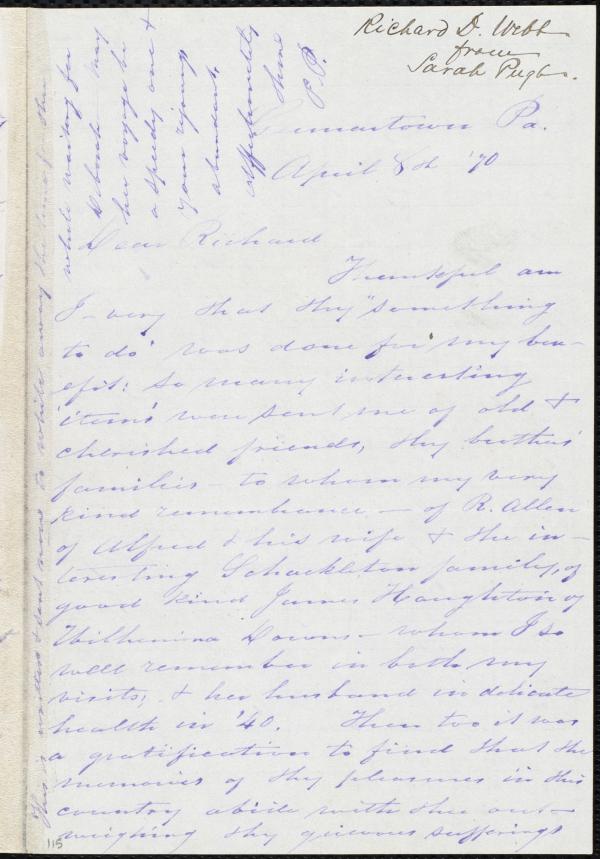 Richard D. Webb
from
Sarah Pugh.
Germantown Pa.
April 8th '70
Dear Richard
Thankful am
I very that thy "something
to do" was done for my ben-
efit: so many interesting
'items' were sent me of old &
cherished friends, thy brothers'
families - to whom my very
kind remembrance - of R. Allen
of Alfred & his wife & the in-
teresting Schackleton family, of
good kind James Haughton of
Wilhemina Downs - whom I so
well remember in both my
visits, & her husband in delicate
health in '40. Then too it was
a gratification to find that the
memories of thy pleasures in this
country abide with thee out-
weighing thy grievous sufferings
while waiting for
Deborah May
her voyage be
a speedy one &
your joys
abundant.
Affectionately
thine
S. P.
This is written & sent more to while away the time
115